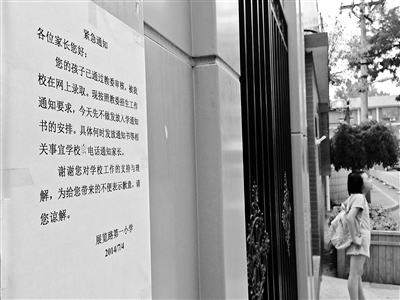 紧急通知
各位家长您好:
您的孩子已通过教委审核,被我
校在网上录取。现按照教委招生工作
通知要求,今天先不做发放入学通知
书的安排。具体何时发放通知书等相
关事宜学校会电话通知家长。
谢谢您对学校工作的支持与理
解,为给您带来的不便表示歉意。请
您谅解。
展览路第一小学
2014/7/4